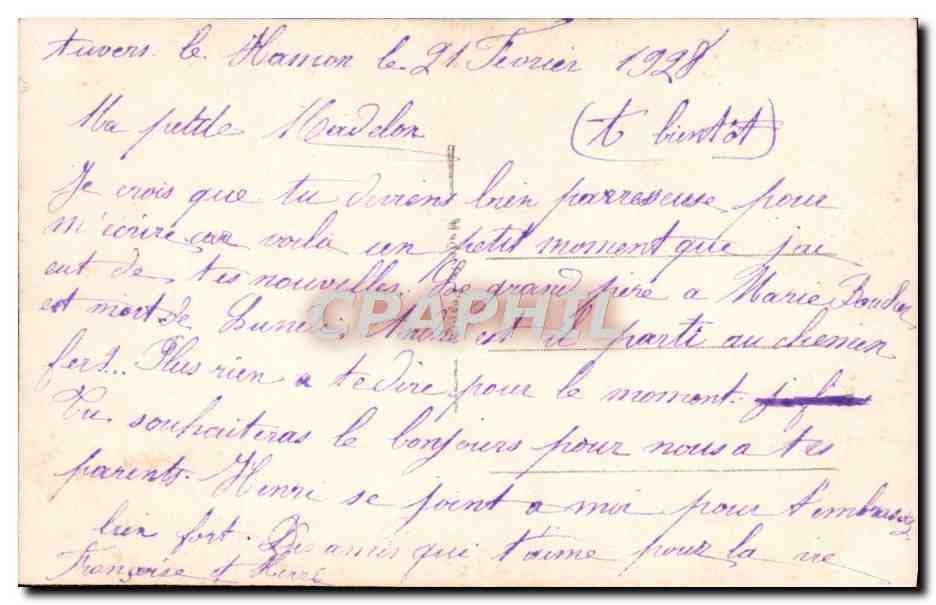 Auvers le Hamon le 21 Fevrier 1928
Ma petite Madelon (a bientôt)
Je crois que tu deviens bien parresseuse pour
m'écrire car voila un petit moment que j'ai
eut de tes nouvelles. Le grand père a Marie
est mort de Lundi. André est il parti au chemin
fert.. Plus rien a te dire pour le momont.
Tu souhaiteras le bonjours pour nous a tes
parents. Henri se joint a moi pour t'embrasser
bien fort. Des amis qui t'aime pour la vie
Françoise et Henri
CPAPHIL